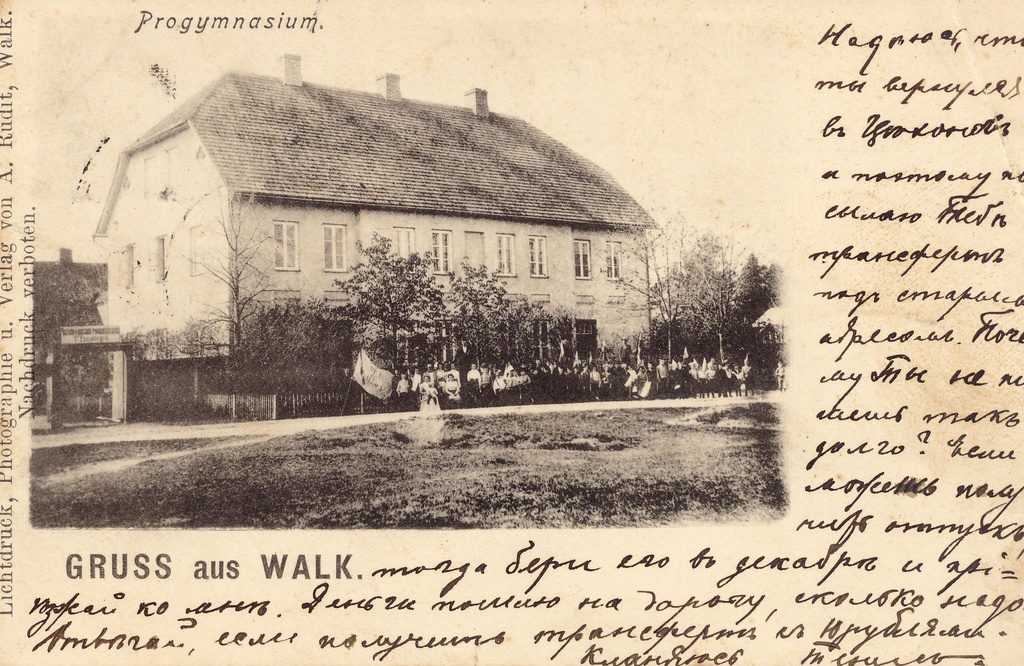 Progymnasium.
Lichtdruck, Photographie u. Verlag von A. Rudit, Walk.
Nachdruck verboten.
Надѣюсь, что
ты вернулся
въ
и поэтому по
сылаю Тебѣ
трансфертъ
подъ старымъ
адресомъ. Поче
му Ты не пи
шешь такъ
долго? Если
можешь полу
чить отпускъ,
GRUSS aus WALK.
тогда бери его въ декабрѣ и прі=
ѣзжай ко мнѣ. Деньги пошлю на дорогу, сколько надо
Отвѣчай, если получишь трансфертъ съ рублями.
Кланяюсь